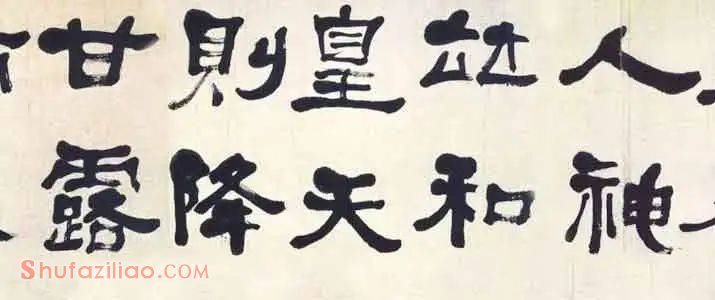 人神
竝和
皇天
則降
甘露
Shufaziliao.COM